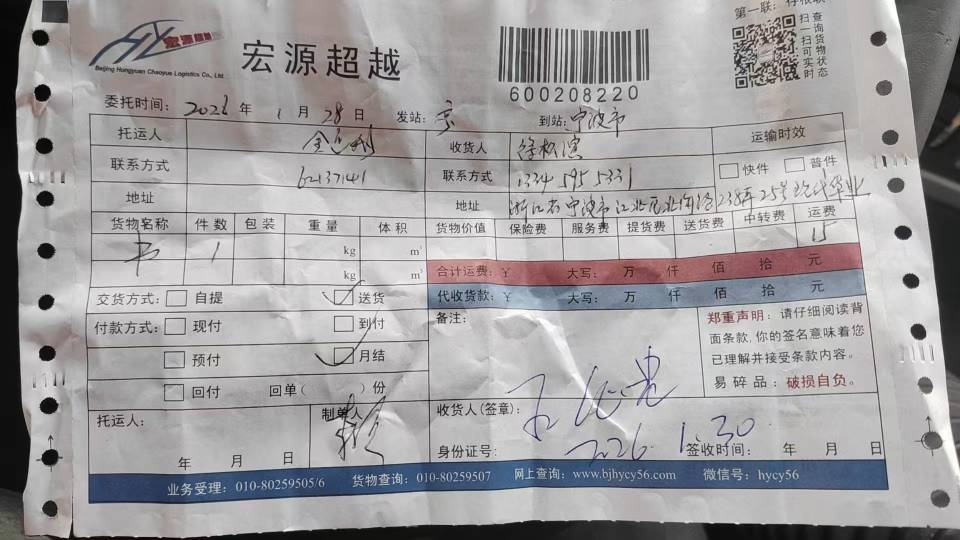 第一联：存根联
扫一扫可查询货物实时状态
宏源超越
Beijing Hongyuan Chaoyue Logistics Co., Ltd.
宏源超越
600208220
委托时间： 年 1 月 28 日 发站：京 到站：宁波市
托运人 收货人 运输时效
联系方式 62137141 联系方式 1334 595 5331 快件 普件
地址 地址 浙江省宁波市江北区 238弄25号
货物名称 件数 包装 重量 体积 货物价值 保险费 服务费 提货费 送货费 中转费 运费
书 1 kg m³ 15
kg m³ 合计运费：¥ 大写： 万 仟 佰 拾 元
交货方式： 自提 送货 代收货款：¥ 大写： 万 仟 佰 拾 元
付款方式： 现付 到付 备注：
预付 月结
回付 回单（ ）份
郑重声明：请仔细阅读背
面条款，你的签名意味着您
已理解并接受条款内容。
易碎品：破损自负。
托运人： 制单人 收货人(签章)：
身份证号： 2026.1.30 签收时间： 年 月 日
年 月 日
业务受理：010-80259505/6 货物查询：010-80259507 网上查询：www.bjhycy56.com 微信号：hycy56